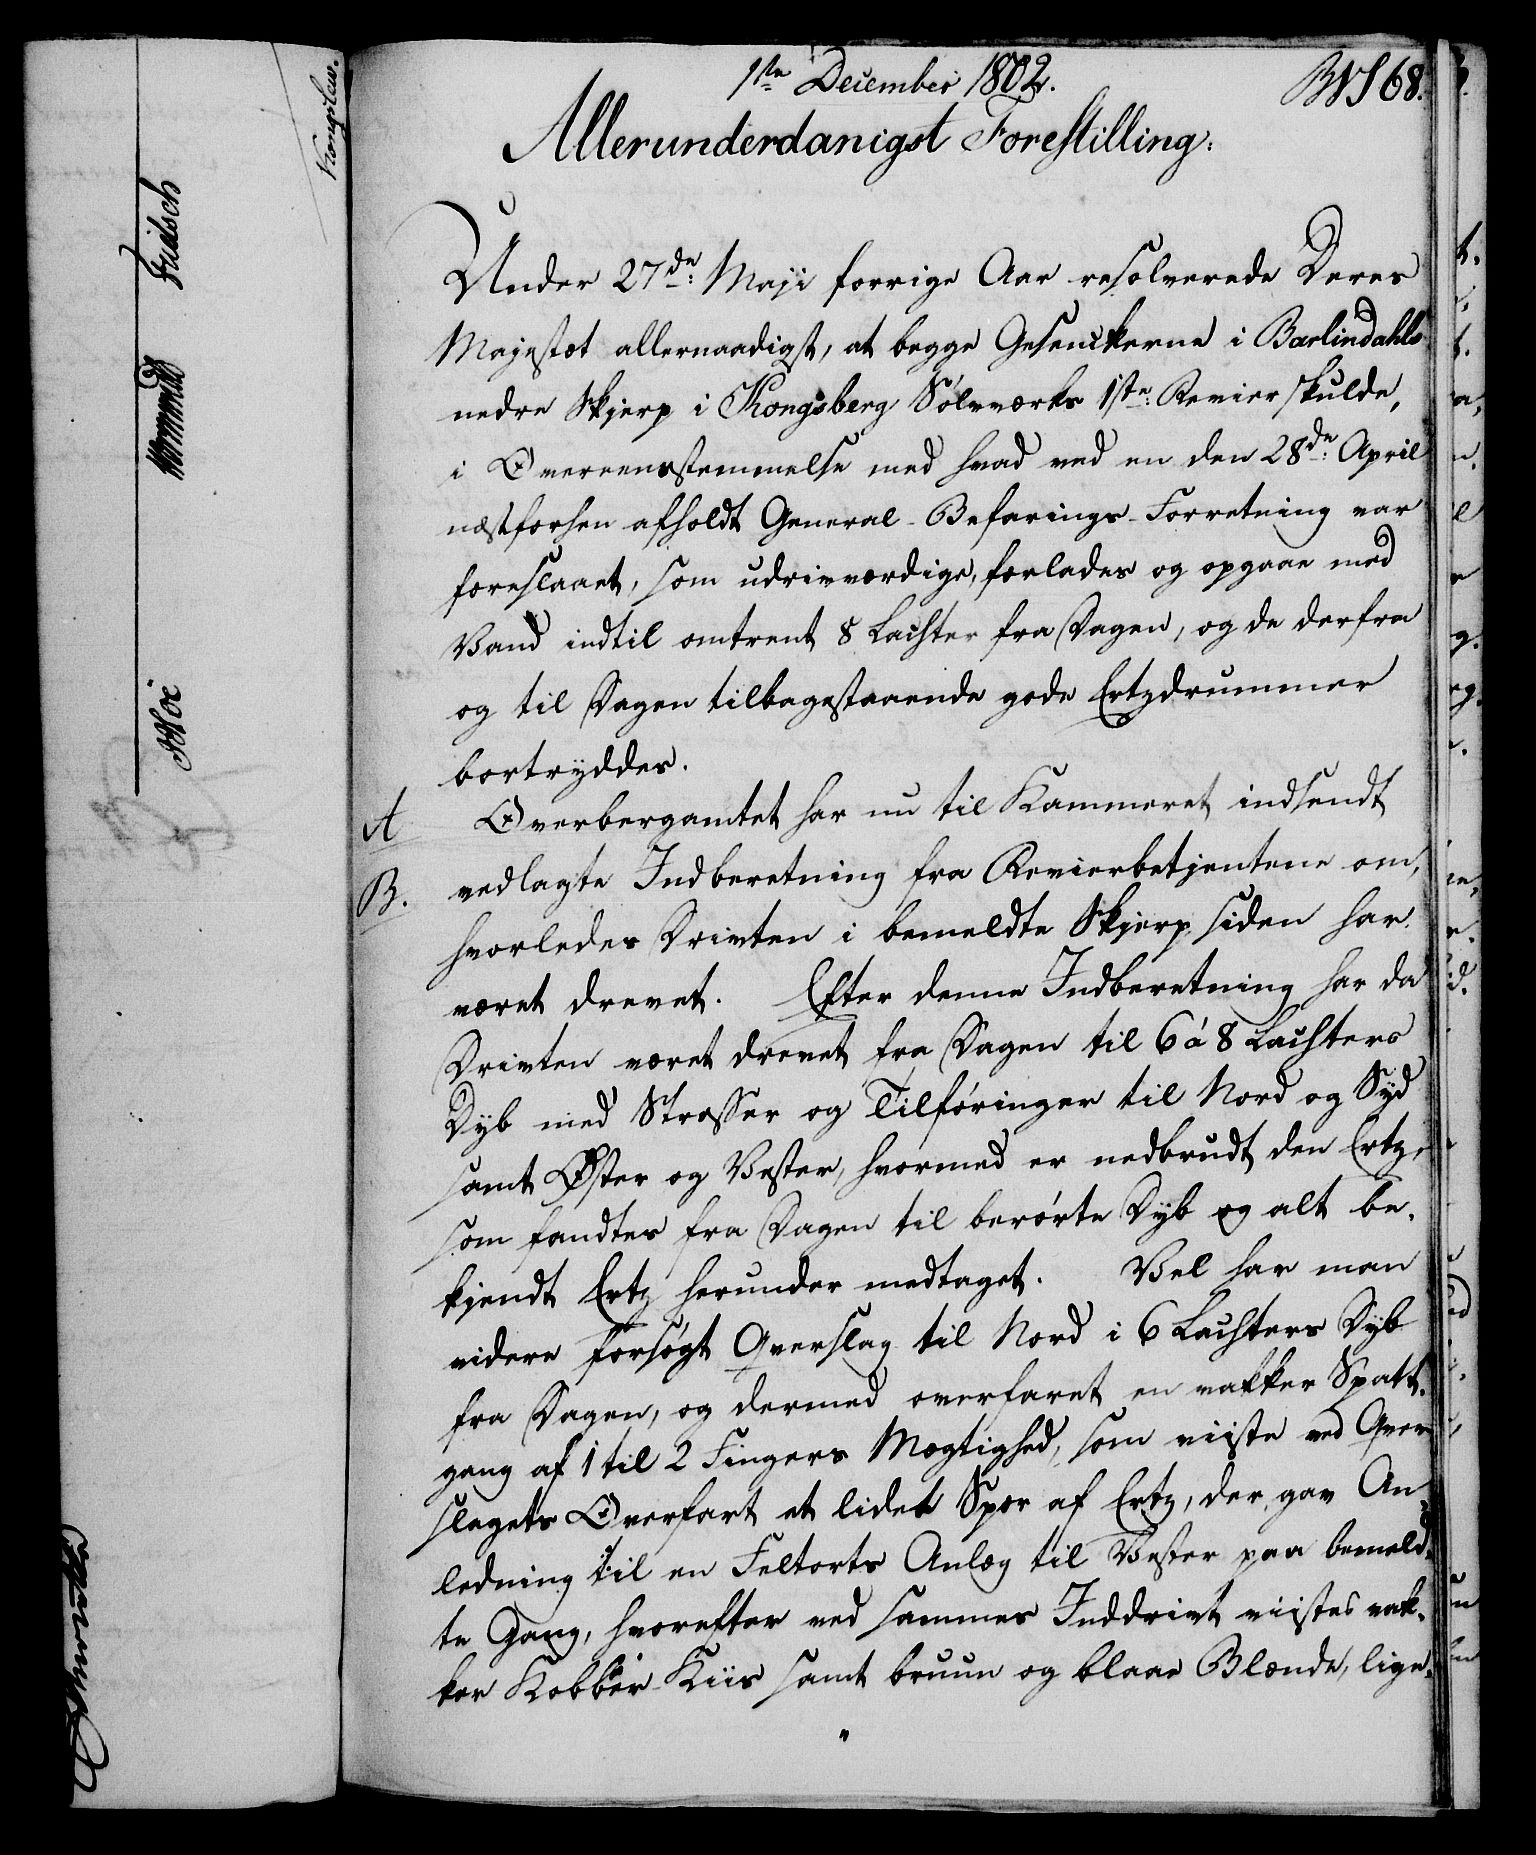 1ste December 1802.
Allerunderdanigst Forestilling:
Under 27de: Maji forrige Aar resolverede Deres
Majestæt allernaadigst, at begge Gesenckerne i Barlindahls
nedre Skjerp i Kongsberg Sølvværks 1ste: Revier skulde,
i Overeensstemmelse med hvad ved en den 28de: April
næstforhen afholdt General-Befarings-Forretning var
foreslaaet, som udrivværdige, forlades og opgaae med
Vand indtil omtrent 8 Lachter fra Dagen, og de derfra
og til Dagen tilbagestaaende gode Ertzdrummer
bortryddes.
A Overbergamtet har nu til Kammeret indsendt
B. vedlagte Indberetning fra Revierbetjentene om,
hvorledes Driften i bemeldte Skjerp siden har
været drevet. Efter denne Indberetning har da
Driften været drevet fra Dagen til 6 à 8 Lachters
Dyb med Strosser og Tilføringer til Nord og Syd
samt Øster og Vester, hvormed er nedbrudt den Ertz,
som fandtes fra Dagen til berørte Dyb og alt be-
kjendt Ertz herunder medtaget. Vel har man
videre forsøgt Qverslag til Nord i 6 Lachters Dyb
fra Dagen, og dermed overfaret en vakker Spatt-
gang af 1 til 2 Fingers Mægtighed, som viiste ved Qver
slagets Overfart et lidet Spor af Ertz, der gav An-
ledning til en Feltorts Anlæg til Vester paa bemeld-
te Gang, hvorefter ved sammes Inddrivt viistes vak-
ker Kobber-Kiis samt bruun og blaae Blænde, lige-